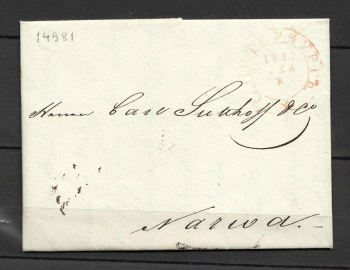 14981
Herren Carl Sutthoff & Co
Narwa.